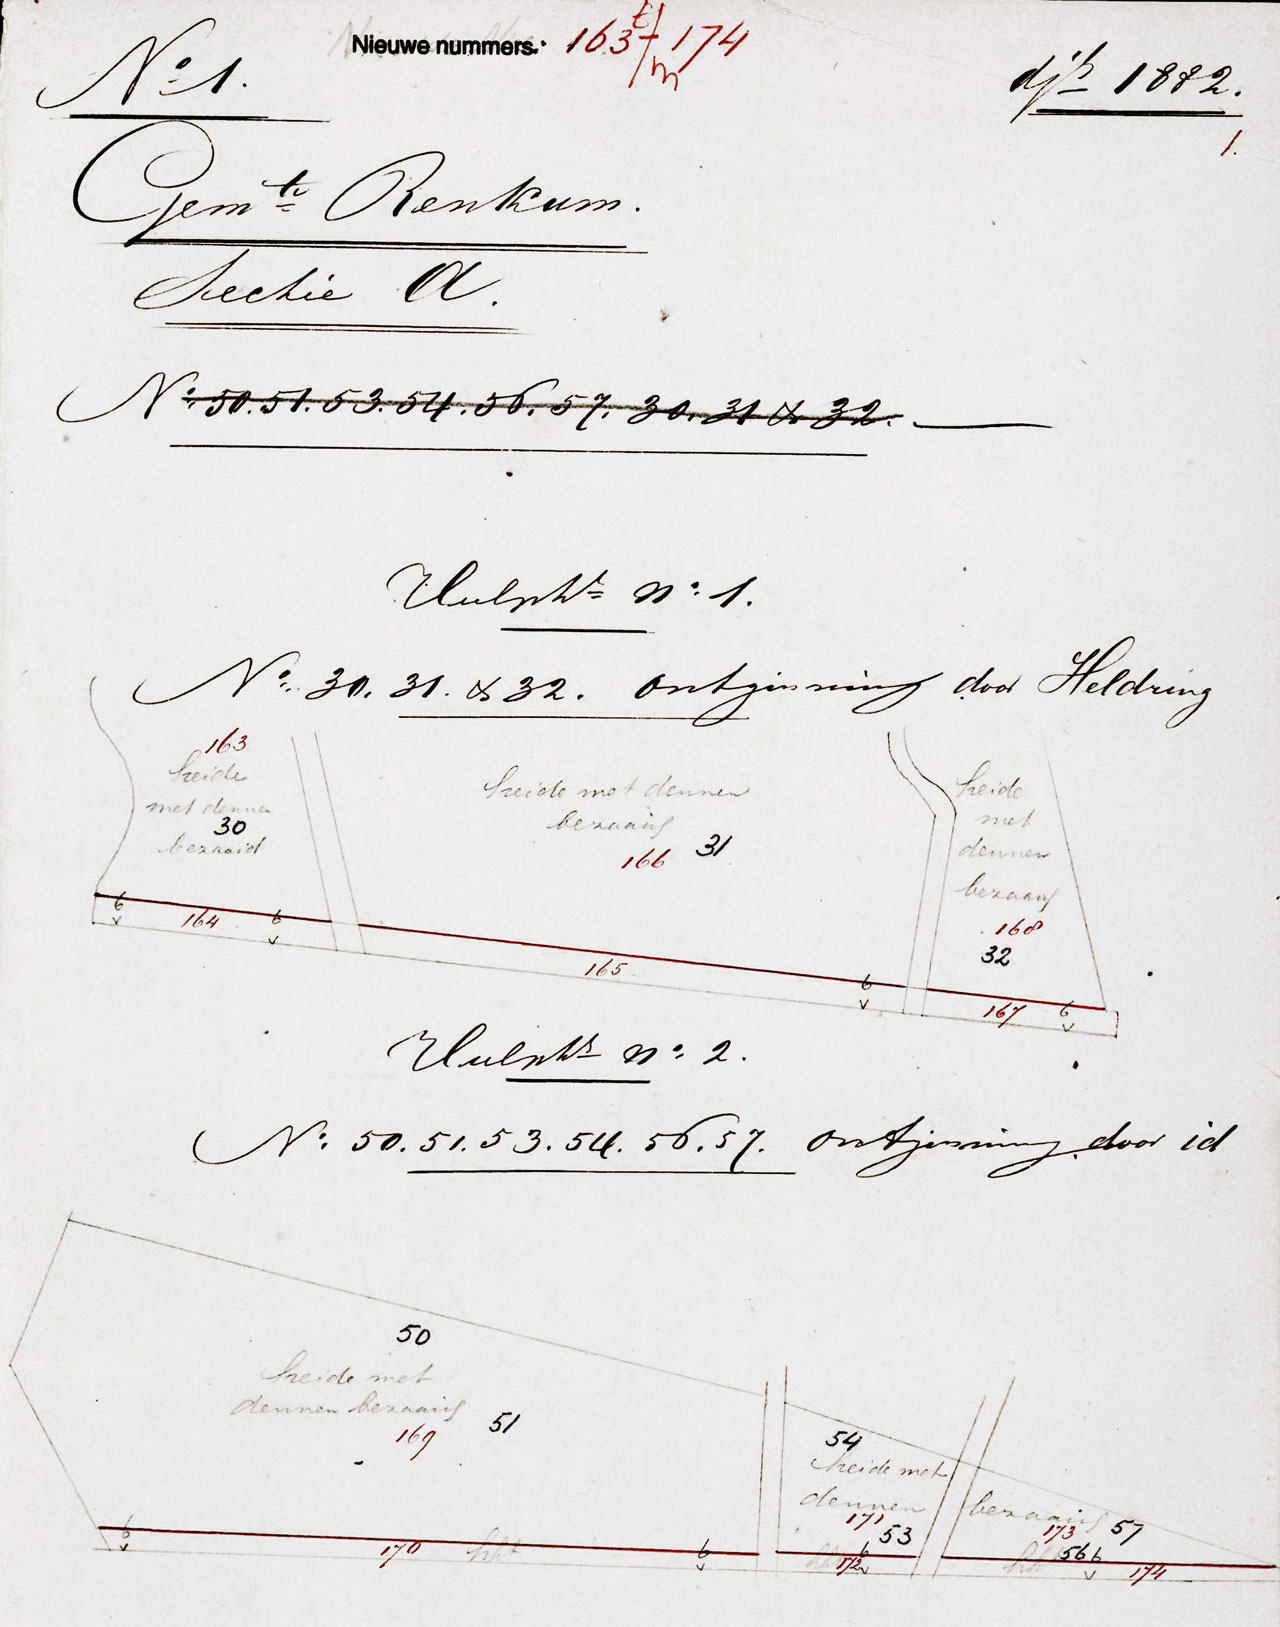 Nieuwe nummers. 163 t/m 174
No 1.
djt 1882.
1.
Gemte Renkum.
Sectie A.
No. 50. 51. 53. 54. 56. 57. 30. 31 & 32.
Hulpkt no. 1.
No. 30. 31. & 32. ontginning door Heldring
163
heide
met dennen
30
bezaaid
heide met dennen
bezaaid
166 31
heide
met
dennen
bezaaid
168
32
6 164 6
165 6
167 6
Hulpkt no. 2.
No. 50. 51. 53. 54. 56. 57. ontginning door id
50
heide met
dennen bezaaid
169 51
54
heide met
dennen
171
53
bezaaid
173 57
6 170 hht 6
172 6
56 6 174